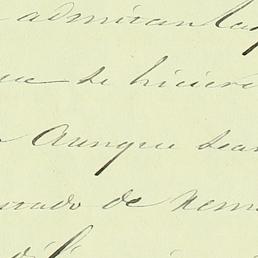 admiran las
que se hiciere
Aunque sean
de Rem